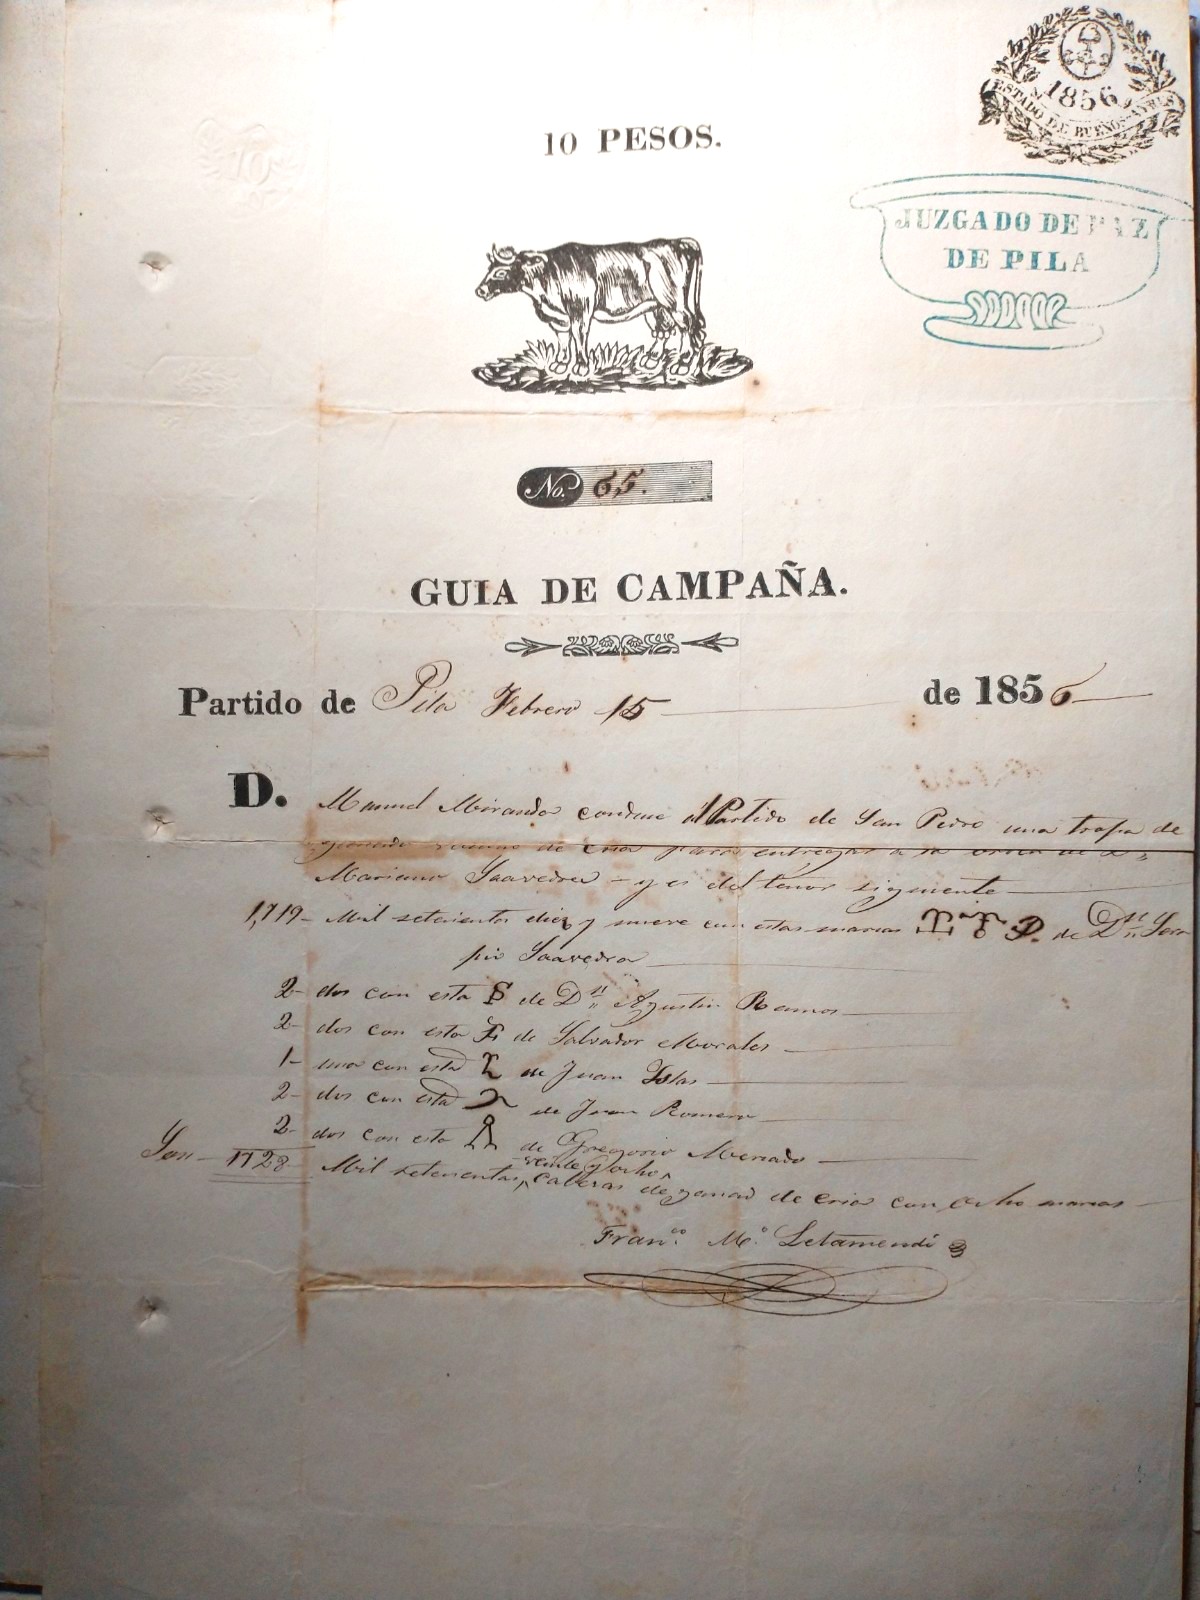 1856
ESTADO DE BUENOS AYRES
10
10 PESOS.
JUZGADO DE PAZ
DE PILA
No. 65.
GUIA DE CAMPAÑA.
Partido de Pila Febrero 15 de 1856
D. Manuel Miranda conduce al Partido de San Pedro una tropa de
ganado de cria para entregar a la orden de Dn
Mariano Saavedra - y es del tenor siguiente
1,719 - Mil setecientos diez y nueve con estas marcas de Dn Sera
pio Saavedra
2 - dos con esta de Dn Agustin Ramos
2 - dos con esta de Salvador Morales
1 - una con esta de Juan Islas
2 - dos con esta de Juan Romero
2 - dos con esta de Gregorio Mercado
Son - 1728 - Mil setecientas veinte y ocho cabezas de ganado de cria con ocho marcas
Franco. Mo. Letamendi